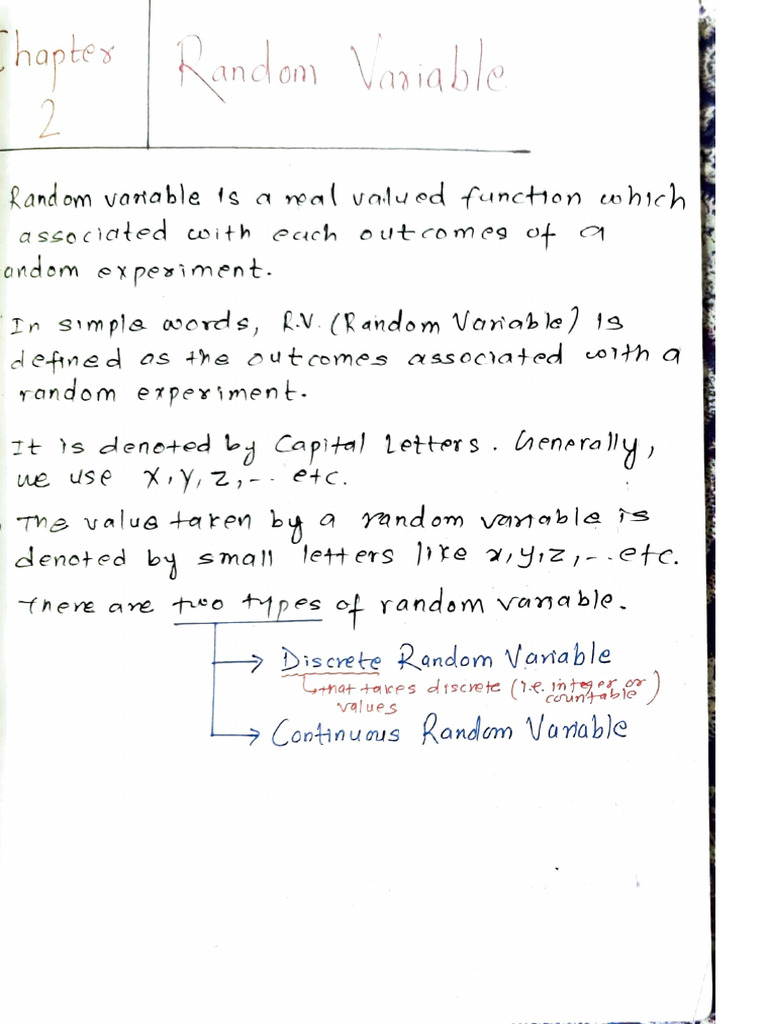 Chapter
2
Random Variable
Random variable is a real valued function which
associated with each outcomes of a
random experiment.
In simple words, R.V. (Random Variable) is
defined as the outcomes associated with a
random experiment.
It is denoted by Capital Letters. Generally,
we use X, Y, Z, -.. etc.
The value taken by a random variable is
denoted by small letters like x, y, z, -.. etc.
There are two types of random variable.
→ Discrete Random Variable
↳ that takes discrete (i.e. integer or
countable)
values
→ Continuous Random Variable